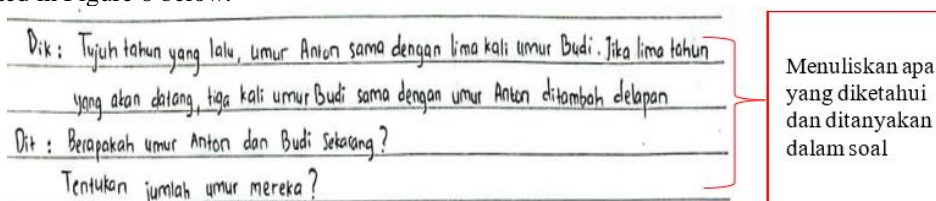 Dik : Tujuh tahun yang lalu, umur Anton sama dengan lima kali umur Budi. Jika lima tahun
yang akan datang, tiga kali umur Budi sama dengan umur Anton ditambah delapan
Dit : Berapakah umur Anton dan Budi Sekarang?
Tentukan jumlah umur mereka?
Menuliskan apa
yang diketahui
dan ditanyakan
dalam soal